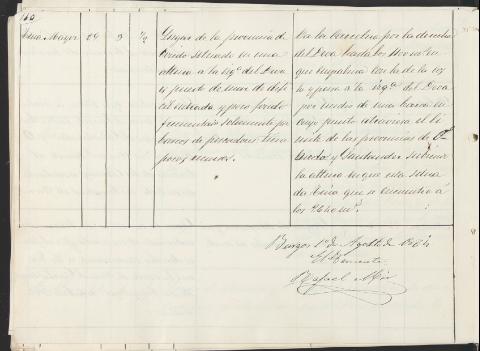 160
Tina Mayor 24 3 1/2
Lugar de la provincia de
Oviedo situado en una
altura a la izqª. del Deva
y puerto de mar de difi
cil entrada y poco fondo
frecuentado solamente por
barcos de pescadores
poros
ba la carretera por la derecha
del Deva hasta los
que empalma con la de la iz
qª y pasa a la izqª. del Deva
por medio de una barca en
cuyo punto atraviesa el lí
mite de las provincias de
Oviedo y Santander subiendo
la altura en que está situa
da Tina que se encuentra á
los
Burgos 1º de Agosto de 1864
El Teniente
Rafael Mir